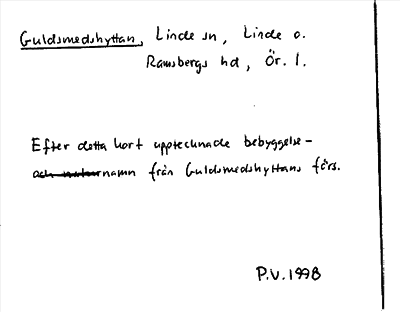 Guldsmedshyttan, Linde sn, Linde o.
Ramsbergs hd, Ör. l.
Efter detta kort upptecknade bebyggelse-
och naturnamn från Guldsmedshyttans förs.
P.V. 1998